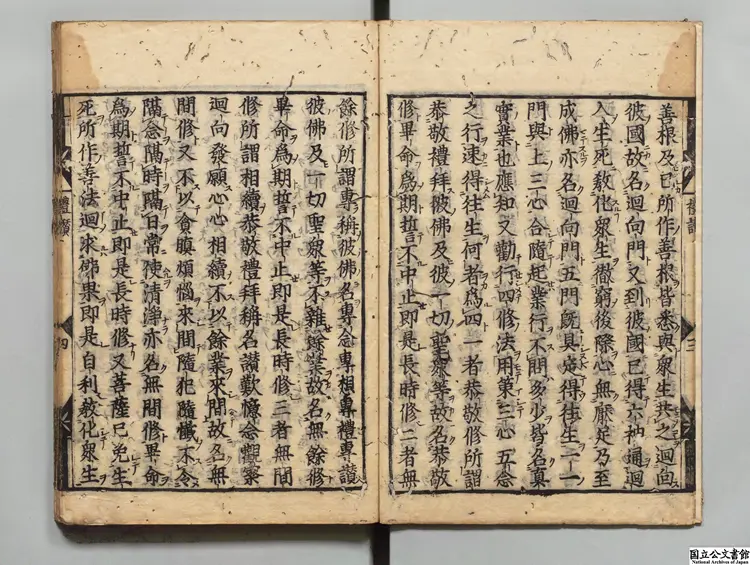 善根及已所作善根皆悉與衆生共之迴向
彼國故名迴向門又到彼國已得六神通迴
入生死教化衆生徹窮後際心無厭足乃至
成佛亦名迴向門五門既具定得往生一一
門與上三心合隨起業行不問多少皆名真
實業也應知又勸行四修法用策三心五念
之行速得往生何者爲四一者恭敬修所謂
恭敬禮拜彼佛及彼一切聖衆等故名恭敬
修畢命爲期誓不中止即是長時修二者無
餘修所謂專稱彼佛名專念專想專禮專讃
彼佛及一切聖衆等不雜餘業故名無餘修
畢命爲期誓不中止即是長時修三者無間
修所謂相續恭敬禮拜稱名讃歎憶念觀察
迴向發願心心相續不以餘業來間故名無
間修又不以貪瞋煩惱來間隨犯隨懺不令
隔念隔時隔日常使清淨亦名無間修畢命
爲期誓不中止即是長時修又菩薩已免生
死所作善法迴求佛果即是自利教化衆生
禮讃
三
四
国立公文書館
National Archives of Japan